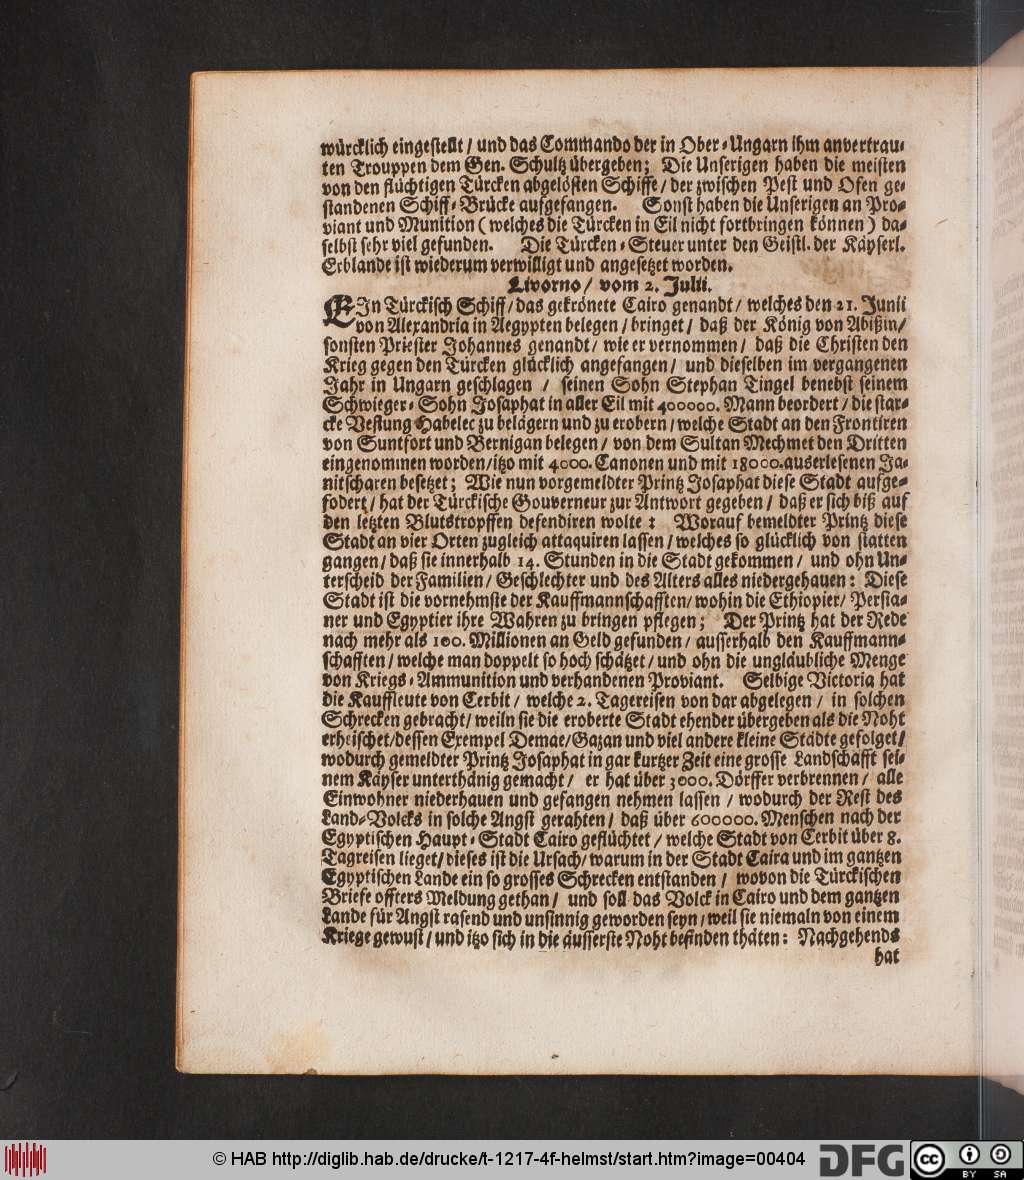 würcklich eingestellt / und das Commando der in Ober-Ungarn ihm anvertrau-
ten Trouppen dem Gen. Schultz übergeben; Die Unserigen haben die meisten
von den flüchtigen Türcken abgelösten Schiffe / der zwischen Pest und Ofen ge-
standenen Schiff-Brücke aufgefangen. Sonst haben die Unserigen an Pro-
viant und Munition (welches die Türcken in Eil nicht fortbringen können) da-
selbst sehr viel gefunden. Die Türcken-Steuer unter den Geistl. der Käyserl.
Erblande ist wiederum verwilligt und angesetzet worden.
Livorno / vom 2. Julii.
EIn Türckisch Schiff / das gekrönete Cairo genandt / welches den 21. Junii
von Alexandria in Aegypten belegen / bringet / daß der König von Abißin /
sonsten Priester Johannes genandt / wie er vernommen / daß die Christen den
Krieg gegen den Türcken glücklich angefangen / und dieselben im vergangenen
Jahr in Ungarn geschlagen / seinen Sohn Stephan Tingel benebst seinem
Schwieger-Sohn Josaphat in aller Eil mit 400000. Mann beordert / die star-
cke Vestung Habelec zu belägern und zu erobern / welche Stadt an den Frontiren
von Suntfort und Bernigan belegen / von dem Sultan Mechmet den Dritten
eingenommen worden / itzo mit 4000. Canonen und mit 18000. auserlesenen Ja-
nitscharen besetzet; Wie nun vorgemeldter Printz Josaphat diese Stadt aufge-
fodert / hat der Türckische Gouverneur zur Antwort gegeben / daß er sich biß auf
den letzten Blutstropffen defendiren wolte: Worauf bemeldter Printz diese
Stadt an vier Orten zugleich attaquiren lassen / welches so glücklich von statten
gangen / daß sie innerhalb 14. Stunden in die Stadt gekommen / und ohn Un-
terscheid der Familien / Geschlechter und des Alters alles niedergehauen: Diese
Stadt ist die vornehmste der Kauffmannschafften / wohin die Ethiopier / Persia-
ner und Egyptier ihre Wahren zu bringen pflegen; Der Printz hat der Rede
nach mehr als 100. Millionen an Geld gefunden / ausserhalb den Kauffmann-
schafften / welche man doppelt so hoch schätzet / und ohn die ungläubliche Menge
von Kriegs-Ammunition und verhandenen Proviant. Selbige Victoria hat
die Kauffleute von Cerbit / welche 2. Tagereisen von dar abgelegen / in solchen
Schrecken gebracht / weiln sie die eroberte Stadt ehender übergeben als die Noht
erheischet / dessen Exempel Demae / Gazan und viel andere kleine Städte gefolget /
wodurch gemeldter Printz Josaphat in gar kurtzer Zeit eine grosse Landschafft sei-
nem Käyser unterthänig gemacht / er hat über 3000. Dörffer verbrennen / alle
Einwohner niederhauen und gefangen nehmen lassen / wodurch der Rest des
Land-Volcks in solche Angst gerahten / daß über 600000. Menschen nach der
Egyptischen Haupt-Stadt Cairo geflüchtet / welche Stadt von Cerbit über 8.
Tagreisen lieget / dieses ist die Ursach / warum in der Stadt Caira und im gantzen
Egyptischen Lande ein so grosses Schrecken entstanden / wovon die Türckischen
Briefe offters Meldung gethan / und soll das Volck in Cairo und dem gantzen
Lande für Angst rasend und unsinnig geworden seyn / weil sie niemaln von einem
Kriege gewust / und itzo sich in die äusserste Noht befinden thäten: Nachgehends
hat
© HAB http://diglib.hab.de/drucke/t-1217-4f-helmst/start.htm?image=00404
DFG
cc BY SA